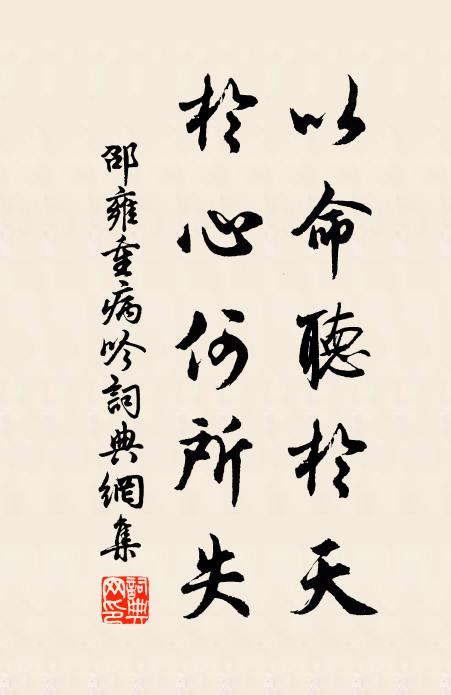 以命聽於天
於心何所失
邵雍重病吟詞典網集
詞典网印